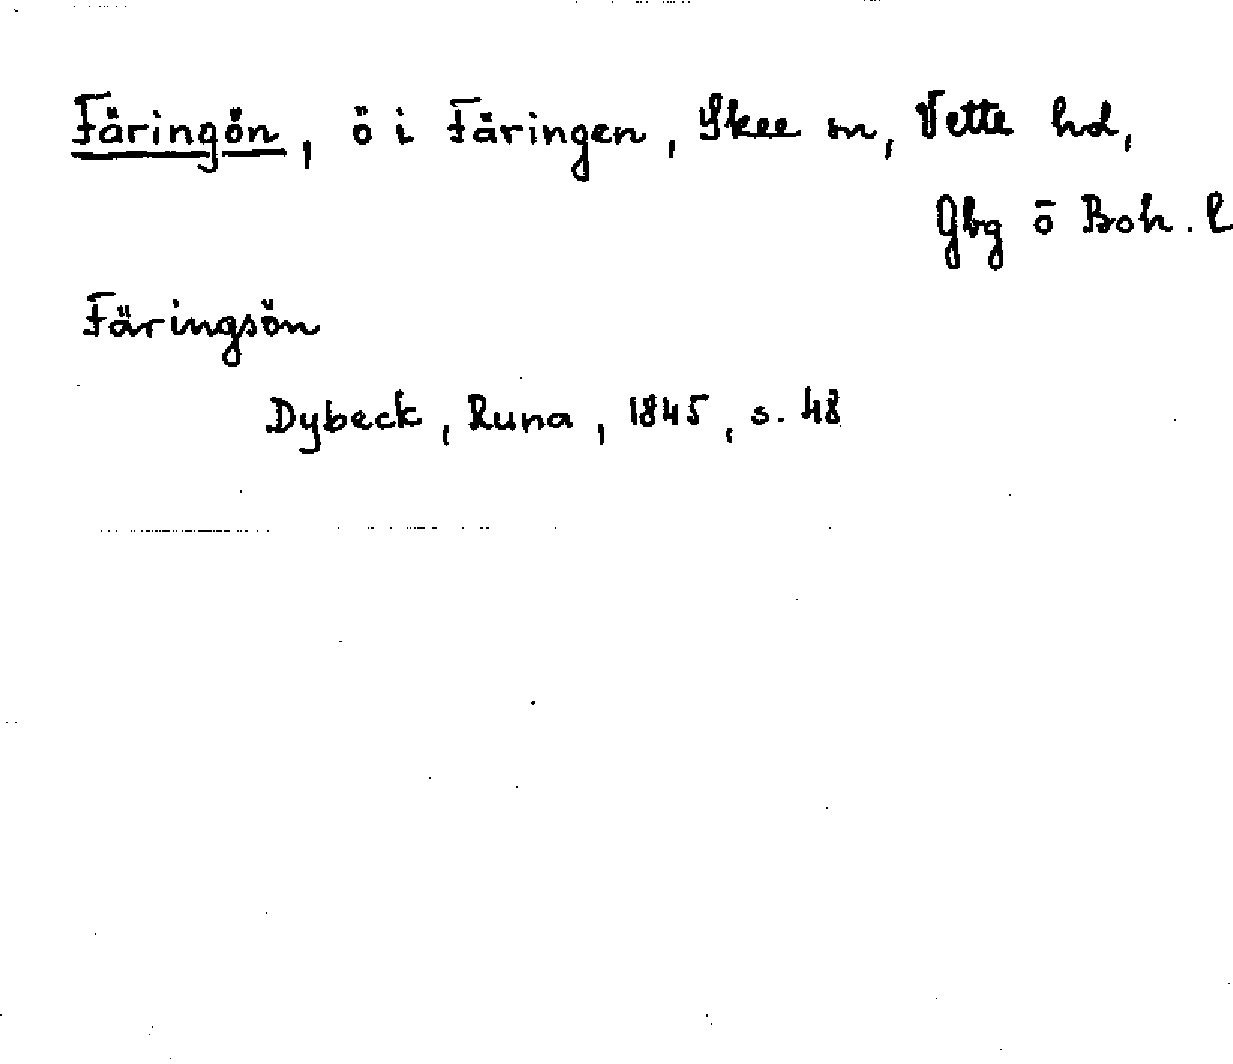 Färingön, ö i Färingen, Skee sn, Vette hd,
Gbg o Boh. l
Färingsön
Dybeck, Runa, 1845, s. 48